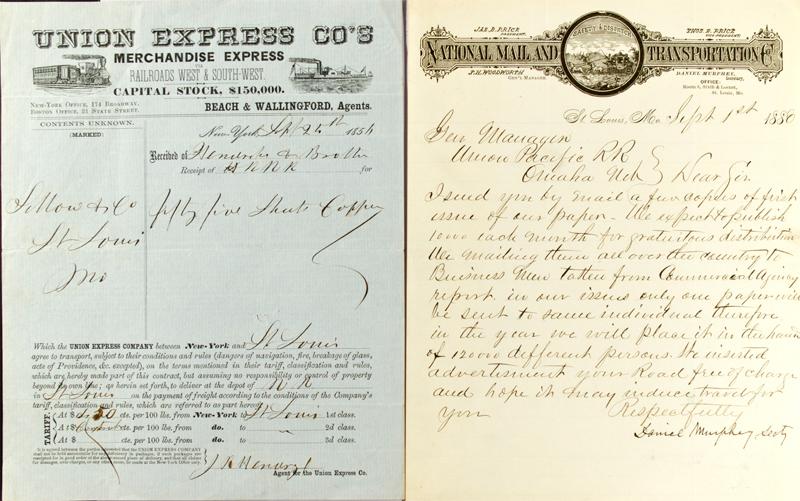 UNION EXPRESS CO'S
MERCHANDISE EXPRESS
VIA
RAILROADS WEST & SOUTH-WEST.
CAPITAL STOCK, $150,000.
NEW-YORK OFFICE, 174 BROADWAY,
BOSTON OFFICE, 21 STATE STREET.
BEACH & WALLINGFORD, Agents.
CONTENTS UNKNOWN.
(MARKED)
New-York Sept 26th 1856
Received of Hendricks & Brothers
Receipt of NRR for
fifty five Sheets Copper
& Co
St Louis
Mo
Which the UNION EXPRESS COMPANY between New-York and St Louis
agree to transport, subject to their conditions and rules (dangers of navigation, fire, breakage of glass,
acts of Providence, &c. excepted), on the terms mentioned in their tariff, classification and rules,
which are hereby made part of this contract, but assuming no responsibility or control of property
beyond its own line; as herein set forth, to deliver at the depot of RR
in St Louis on the payment of freight according to the conditions of the Company's
tariff, classification and rules, which are referred to as part hereof.
TARIFF.
At $ cts. per 100 lbs. from New-York to St Louis 1st class.
At $ cts. per 100 lbs. from do. to 2d class.
At $ cts. per 100 lbs. from do. to 3d class.
Agent for the Union Express Co.
JAS. B. PRICE
PRESIDENT.
THOS. B. PRICE
VICE PRESIDENT
NATIONAL MAIL AND TRANSPORTATION Co.
J. H. WOODWORTH
GEN'L MANAGER
DANIEL MURPHY,
Secretary.
OFFICE:
St. Louis, Mo.
St. Louis, Mo. Sept 1st 1880
Gen Manager
Union Pacific RR
Omaha Neb Dear Sir
I send you by mail a few copies of first
issue of our paper - We expect to publish
10000 each month for gratuitous distribution
We mailing them all over the country to
Business Men taken from Commercial Agency
report. in our issues only one paper will
be sent to same individual therefore
in the year we will place it in the hands
of 120000 different persons. We inserted
advertisment your Road free of charge
and hope it may induce travel for
you Respectfully
Daniel Murphy Secty